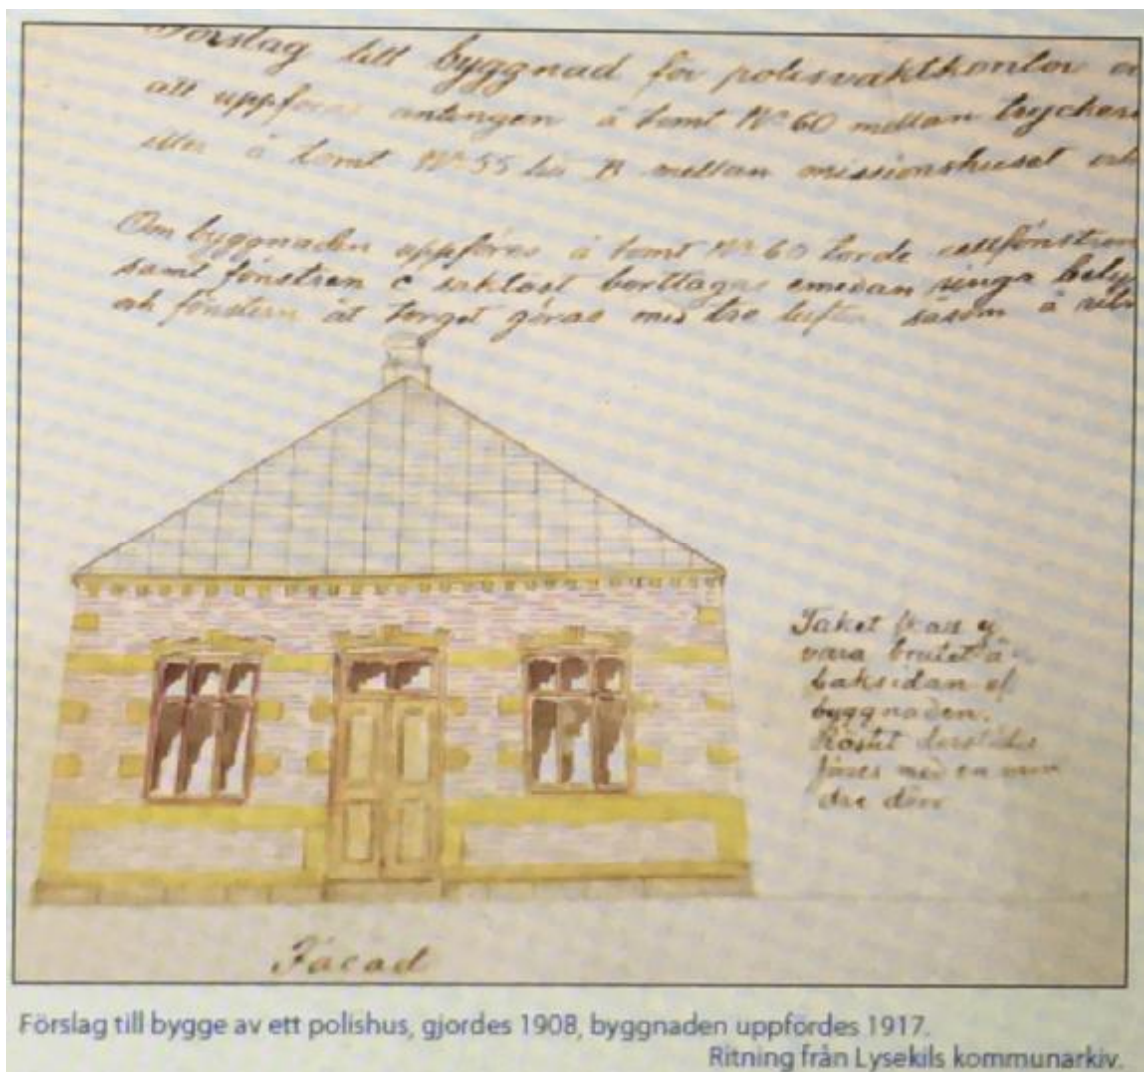 Förslag till byggnad för polisvaktkontor
att uppföras antingen å tomt No 60 mellan
eller å tomt No 55 B mellan missionshuset
Om byggnaden uppföres å tomt No 60 torde
samt fönstren c saklöst borttagas emedan
och fönstern åt torget göras med tre såsom å
Taket kan ej
vara brutet å
baksidan af
byggnaden.
Röstet
med en min
dre dörr
Facad
Förslag till bygge av ett polishus, gjordes 1908, byggnaden uppfördes 1917.
Ritning från Lysekils kommunarkiv.